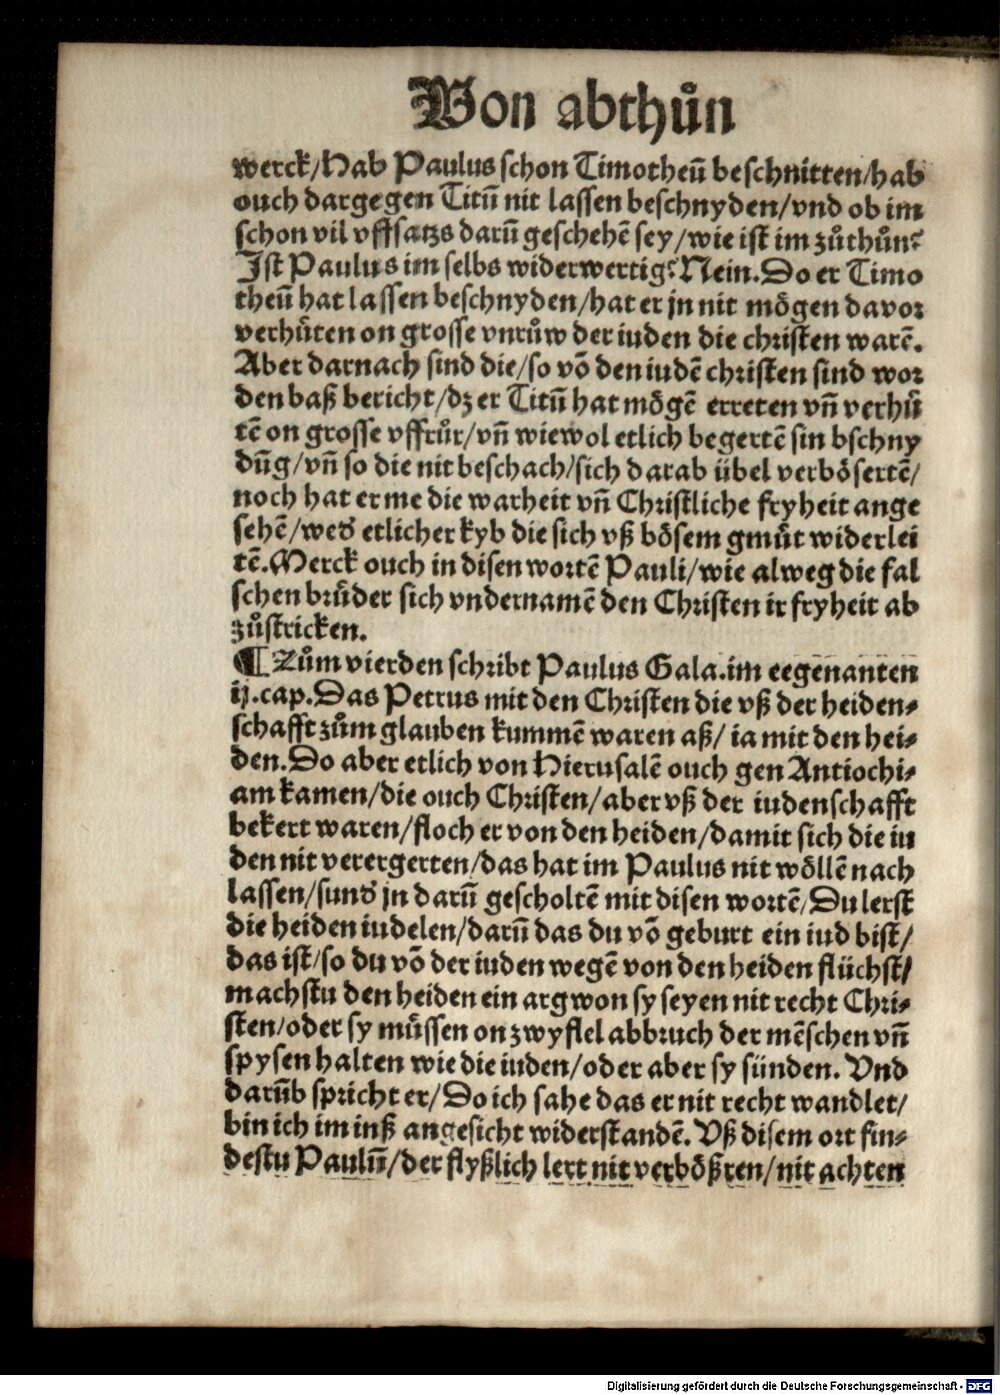 Von abthůn
werck/Hab Paulus schon Timotheū beschnitten/hab
ouch dargegen Titū nit lassen beschnyden/vnd ob im
schon vil vffsatzs darū geschehē sey/wie ist im zůthůn?
Ist Paulus im selbs widerwertig? Nein. Do er Timo
theū hat lassen beschnyden/hat er jn nit mögen davor
verhůten on grosse vnrůw der iuden die christen warē.
Aber darnach sind die/so vō den iudē christen sind wor
den baß bericht/dz er Titū hat mögē erreten vn̄ verhů
tē on grosse vffrůr/vn̄ wiewol etlich begertē sin bschny
dūg/vn̄ so die nit beschach/sich darab übel verbösertē/
noch hat er me die warheit vn̄ Christliche fryheit ange
sehē/wed' etlicher kyb die sich vß bösem gmůt widerlei
tē. Merck ouch in disen wortē Pauli/wie alweg die fal
schen brůder sich vndernamē den Christen ir fryheit ab
zůstricken.
¶ Zům vierden schribt Paulus Gala. im eegenanten
ij. cap. Das Petrus mit den Christen die vß der heiden⸗
schafft zům glauben kummē waren aß/ ia mit den hei⸗
den. Do aber etlich von Hierusalē ouch gen Antiochi⸗
am kamen/die ouch Christen/aber vß der iudenschafft
bekert waren/floch er von den heiden/damit sich die iu
den nit verergerten/das hat im Paulus nit wöllē nach
lassen/sund' jn darū gescholtē mit disen wortē/Du lerst
die heiden iudelen/darū das du vō geburt ein iud bist/
das ist/so du vō der iuden wegē von den heiden flüchst/
machstu den heiden ein argwon sy seyen nit recht Chri⸗
sten/oder sy můssen on zwyflel abbruch der mēschen vn̄
spysen halten wie die iuden/oder aber sy sünden. Vnd
darūb spricht er/Do ich sahe das er nit recht wandlet/
bin ich im inß angesicht widerstandē. Vß disem ort fin⸗
destu Paulū/der flyßlich lert nit verbößren/nit achten
Digitalisierung gefördert durch die Deutsche Forschungsgemeinschaft - DFG